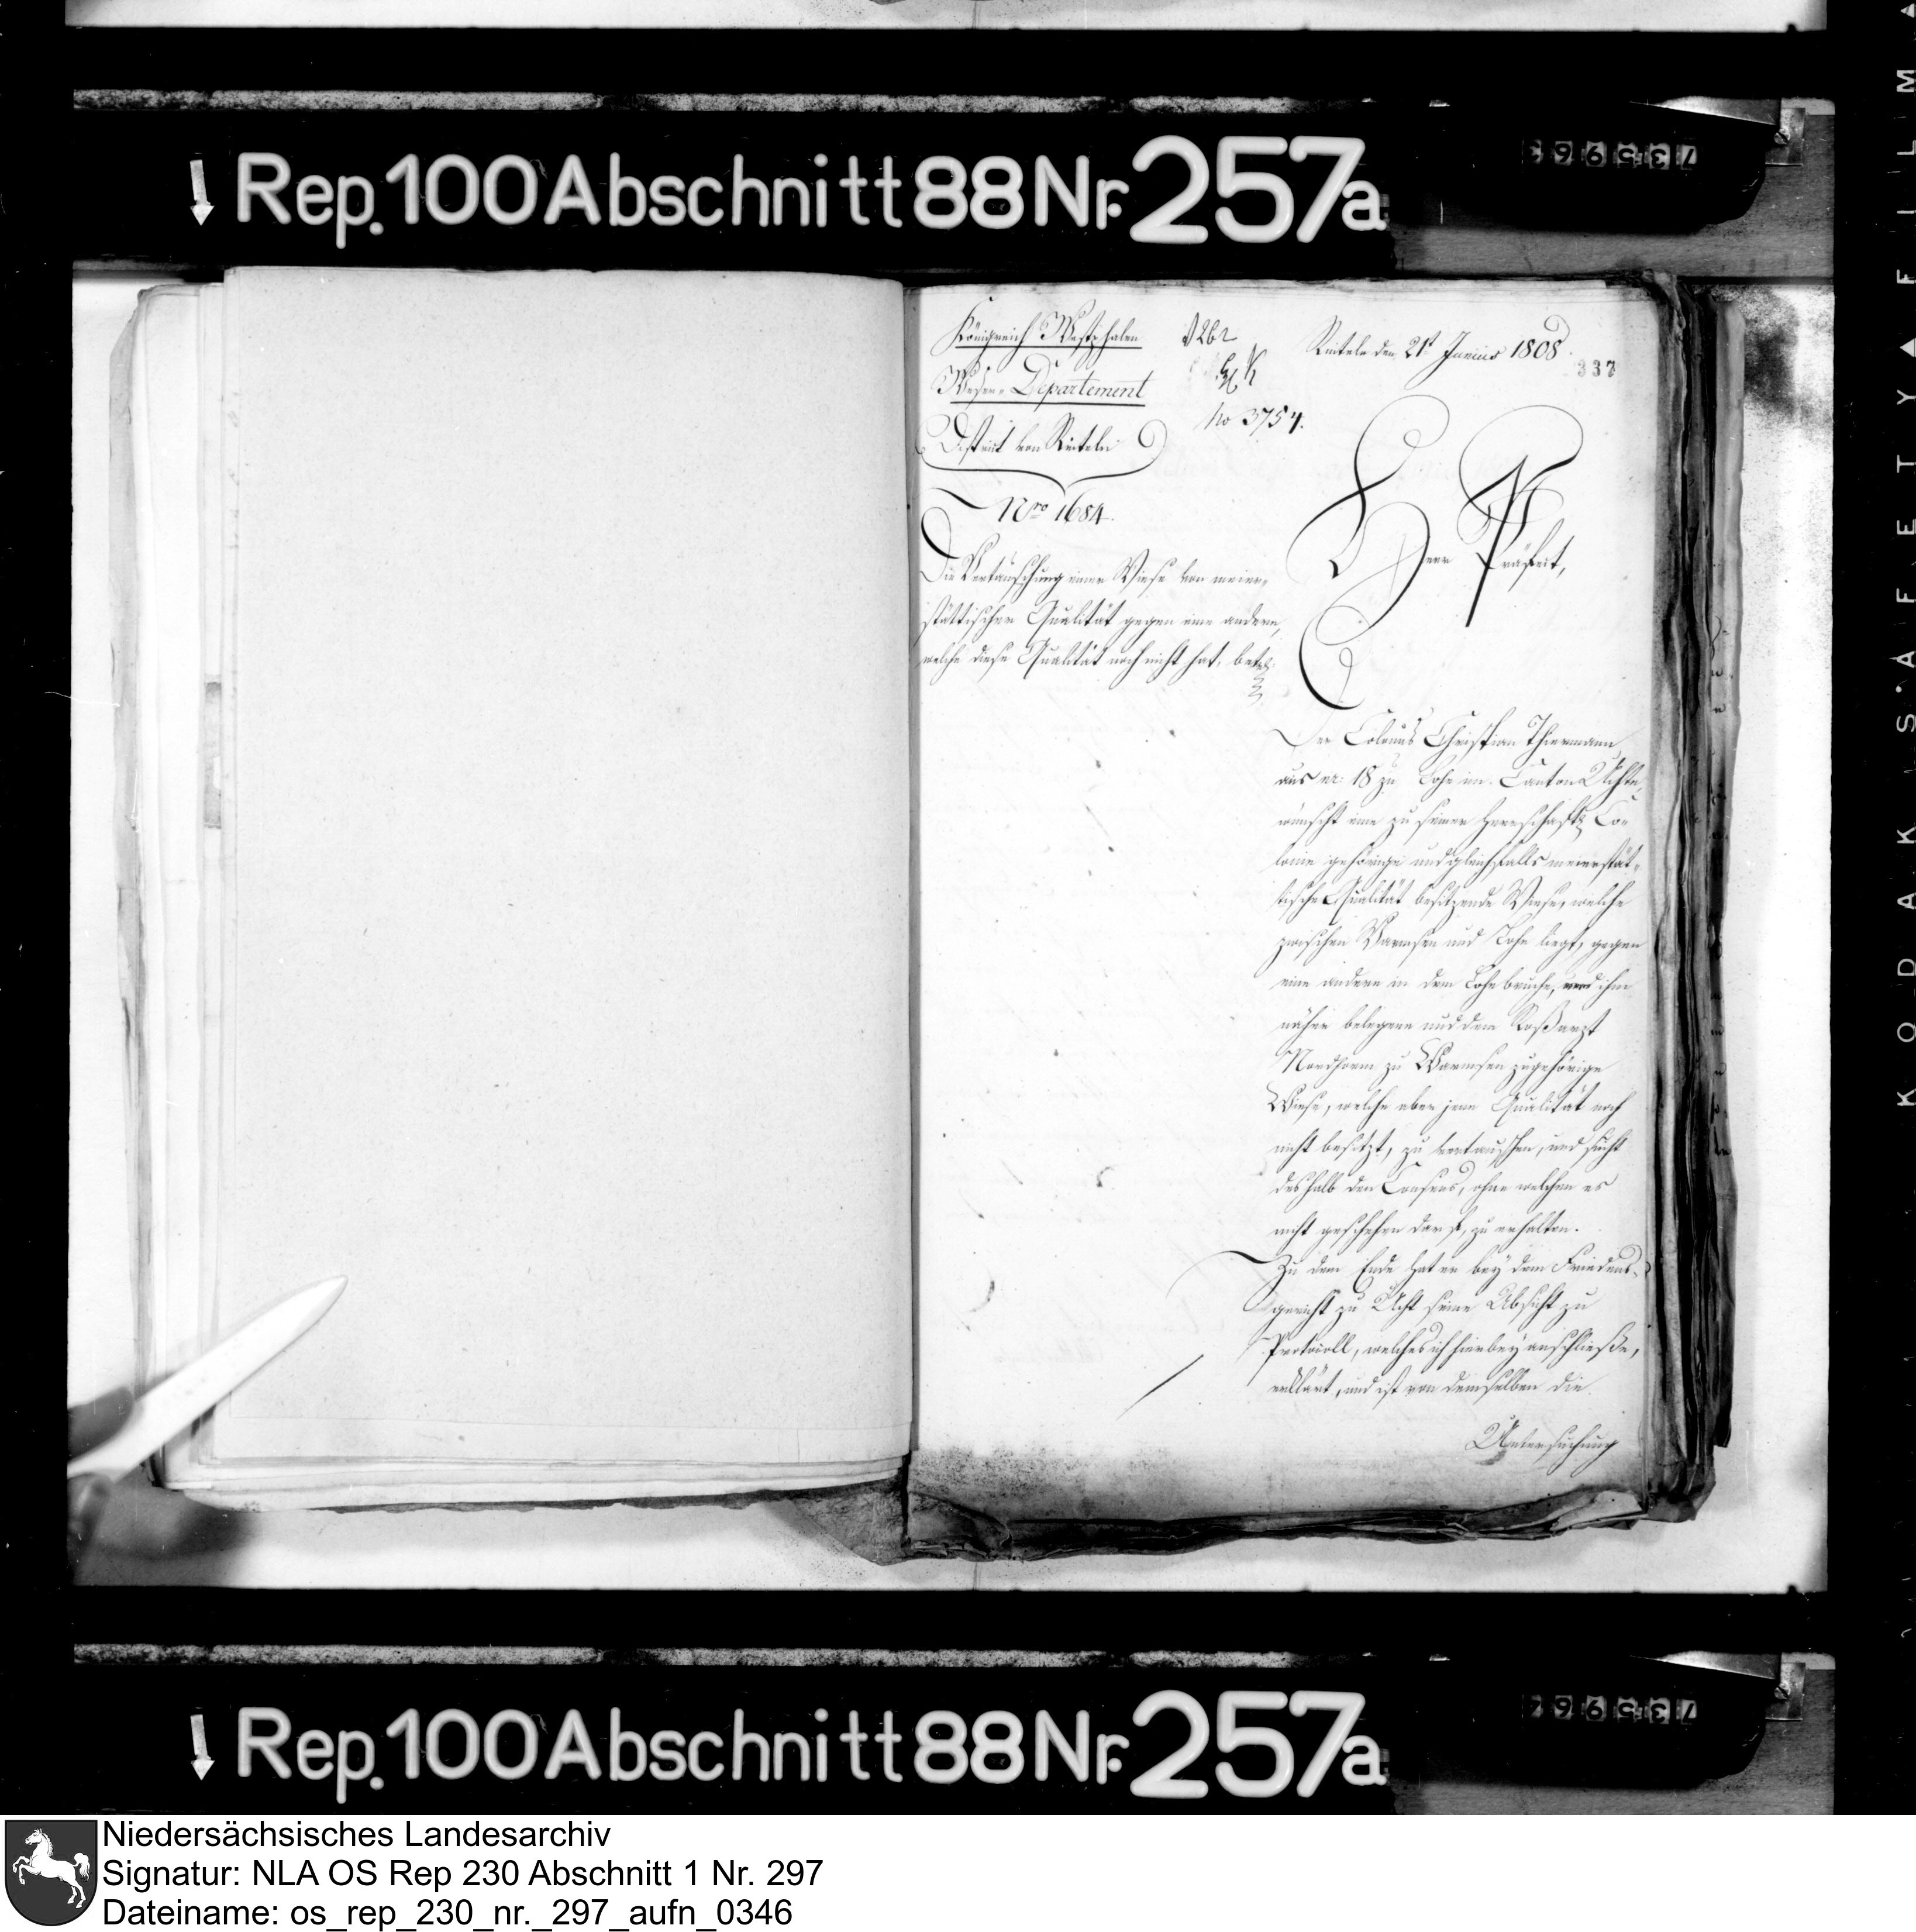 Rep. 100 Abschnitt 88 Nr. 257a
Königreich Westphalen
Weser-Departement
District von Rinteln
Nro 1684.
Die Vertauschung einer Wiese von meier-
stättischer Qualität gegen eine andere,
welche diese Qualität noch nicht hat, betr.
No 3754.
Rinteln den 21t Junius 1808.
337
Herr Präfect,
Der Colonus Christian Thiermann
aus nr: 18 zu Lohe im Canton Uchte,
wünscht eine zu seiner herrschaftl. Co-
lonie gehörige und gleichfalls meierstät-
tische Qualität besitzende Wiese, welche
zwischen Warmsen und Lohe liegt, gegen
eine andere in dem Lohe bruche, ihm
näher belegene und dem Roßarzt
Nordhorn zu Warmsen zugehörige
Wiese, welche aber jene Qualität noch
nicht besitzt, zu vertauschen, und sucht
deshalb den Consens, ohne welchen es
nicht geschehen darf, zu erhalten.
Zu dem Ende hat er bey dem Friedens-
gericht zu Ucht seine Absicht zu
Protocoll, welches ich hierbey anschließe,
erklärt, und ist von demselben die
Untersuchung
Rep. 100 Abschnitt 88 Nr. 257a
KODAK SAFETY FILM
Niedersächsisches Landesarchiv
Signatur: NLA OS Rep 230 Abschnitt 1 Nr. 297
Dateiname: os_rep_230_nr._297_aufn_0346